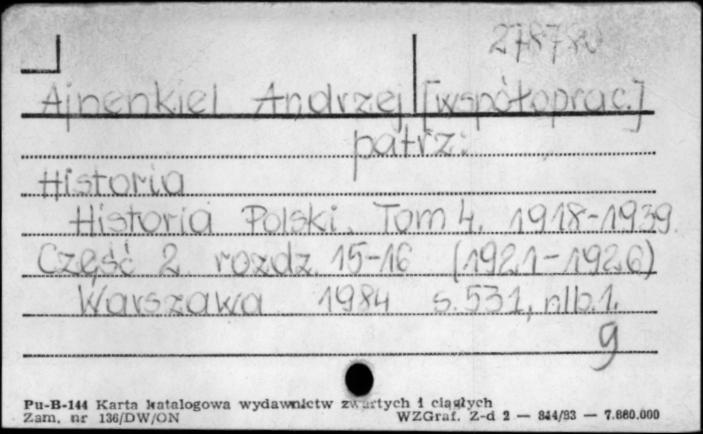 278780
Ajnenkiel Andrzej [współoprac.]
patrz:
Historia
Historia Polski. Tom 4. 1918-1939.
Część 2. rozdz. 15-16 (1921-1926)
Warszawa 1984 s. 531, nlb. 1.
g
Pu-B-144 Karta katalogowa wydawnictw zwartych i ciągłych
Zam. nr 136/DW/ON WZGraf. Z-d 2 — 844/83 — 7.860.000